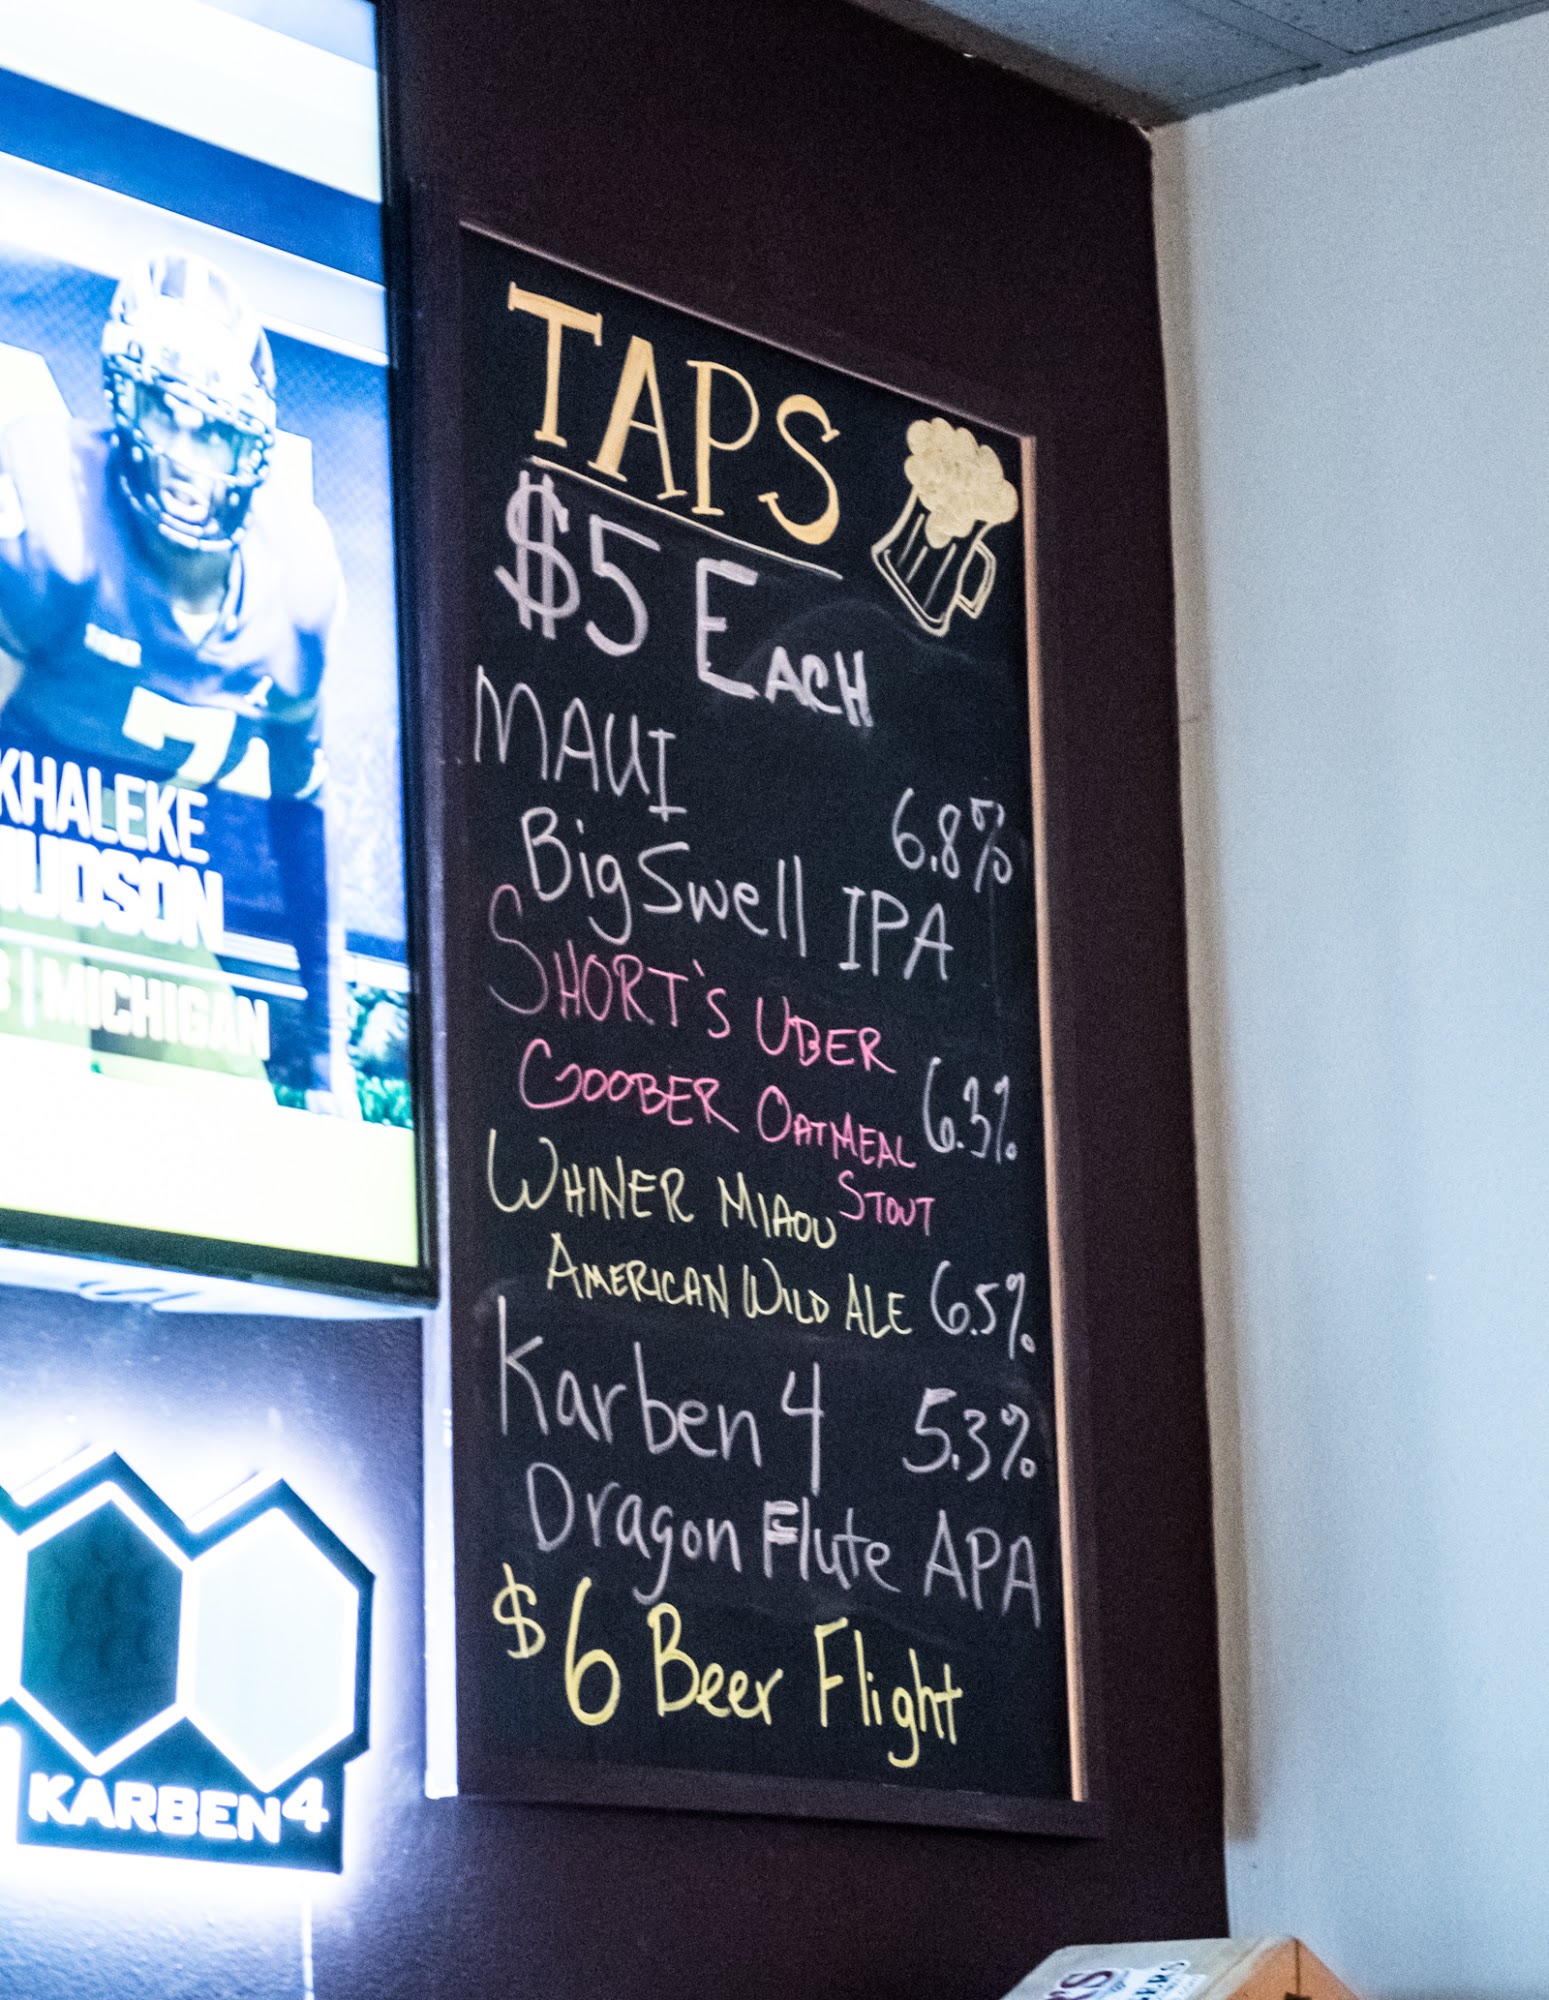 TAPS
$5 EACH
MAUI
Big Swell IPA 6.8%
SHORT'S UBER
GOOBER OATMEAL 6.3%
STOUT
WHINER MIAOU
AMERICAN WILD ALE 6.5%
Karben 4 5.3%
Dragon Flute APA
$6 Beer Flight
KHALEKE
HUDSON
| MICHIGAN
7
KARBEN4